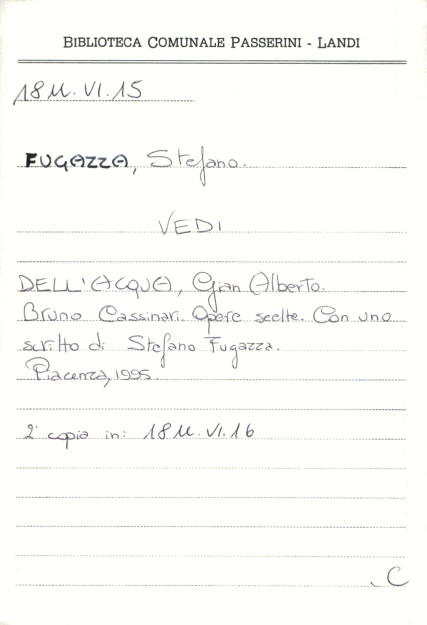 BIBLIOTECA COMUNALE PASSERINI - LANDI
18 M. VI. 15
FUGAZZA, Stefano.
VEDI
DELL'ACQUA, Gian Alberto.
Bruno Cassinari. Opere scelte. Con uno
scritto di Stefano Fugazza.
Piacenza, 1995.
2ª copia in: 18 M. VI. 16
C